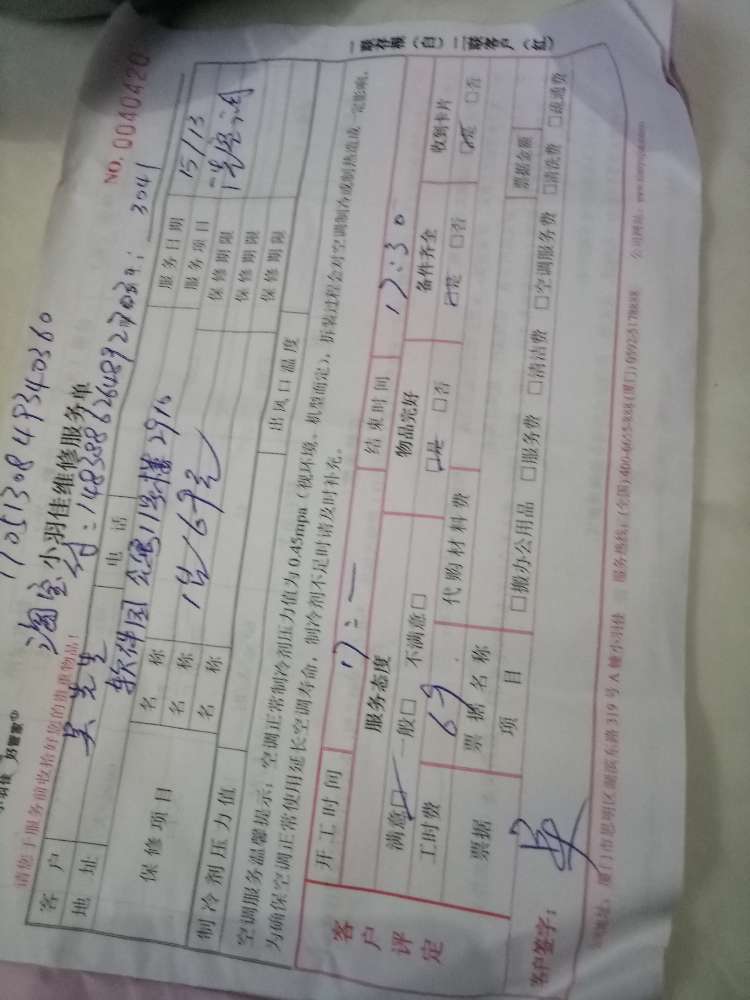 1705130849340360
淘宝小羽佳维修服务单
NO. 0040420
请您于服务前收拾好您的贵重物品!
客户 吴先生 电话
地址 软件园 公寓11号楼2916
服务日期 15/13
保修项目 名称 1台/69元 服务项目
名称 保修期限
名称 保修期限
制冷剂压力值 出风口温度 保修期限
空调服务温馨提示:空调正常制冷剂压力值为0.45mpa(视环境、机型而定),拆装过程会对空调制冷或制热造成一定影响,
为确保空调正常使用延长空调寿命,制冷剂不足时请及时补充。
客户评定
开工时间 17: 结束时间 17:30
服务态度 物品完好 备件齐全 收到卡片
满意□ 一般□ 不满意□ □是 □否 □是 □否 □是 □否
工时费 69. 代购材料费
票据 票据名称 票据金额
项目 □搬办公用品 □服务费 □清洁费 □空调服务费 □清洗费 □疏通费
客户签字: 吴
地址:厦门市思明区湖滨东路319号A幢小羽佳 服务热线:(全国)400-6655-888 (厦门)0592-5178888 公司网址:
一联存根(白)二联客户(红)